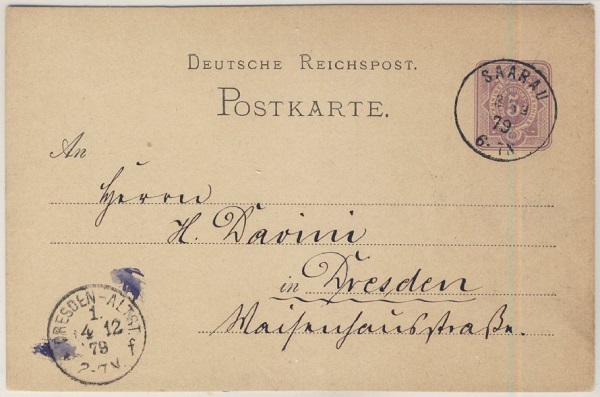 DEUTSCHE REICHSPOST.
POSTKARTE.
SAARAU
79
5
An
Herrn
H. Davini
in Dresden
Waisenhausstraße.
DRESDEN-ALTST.
1.
4 12
79 f
2-7N.